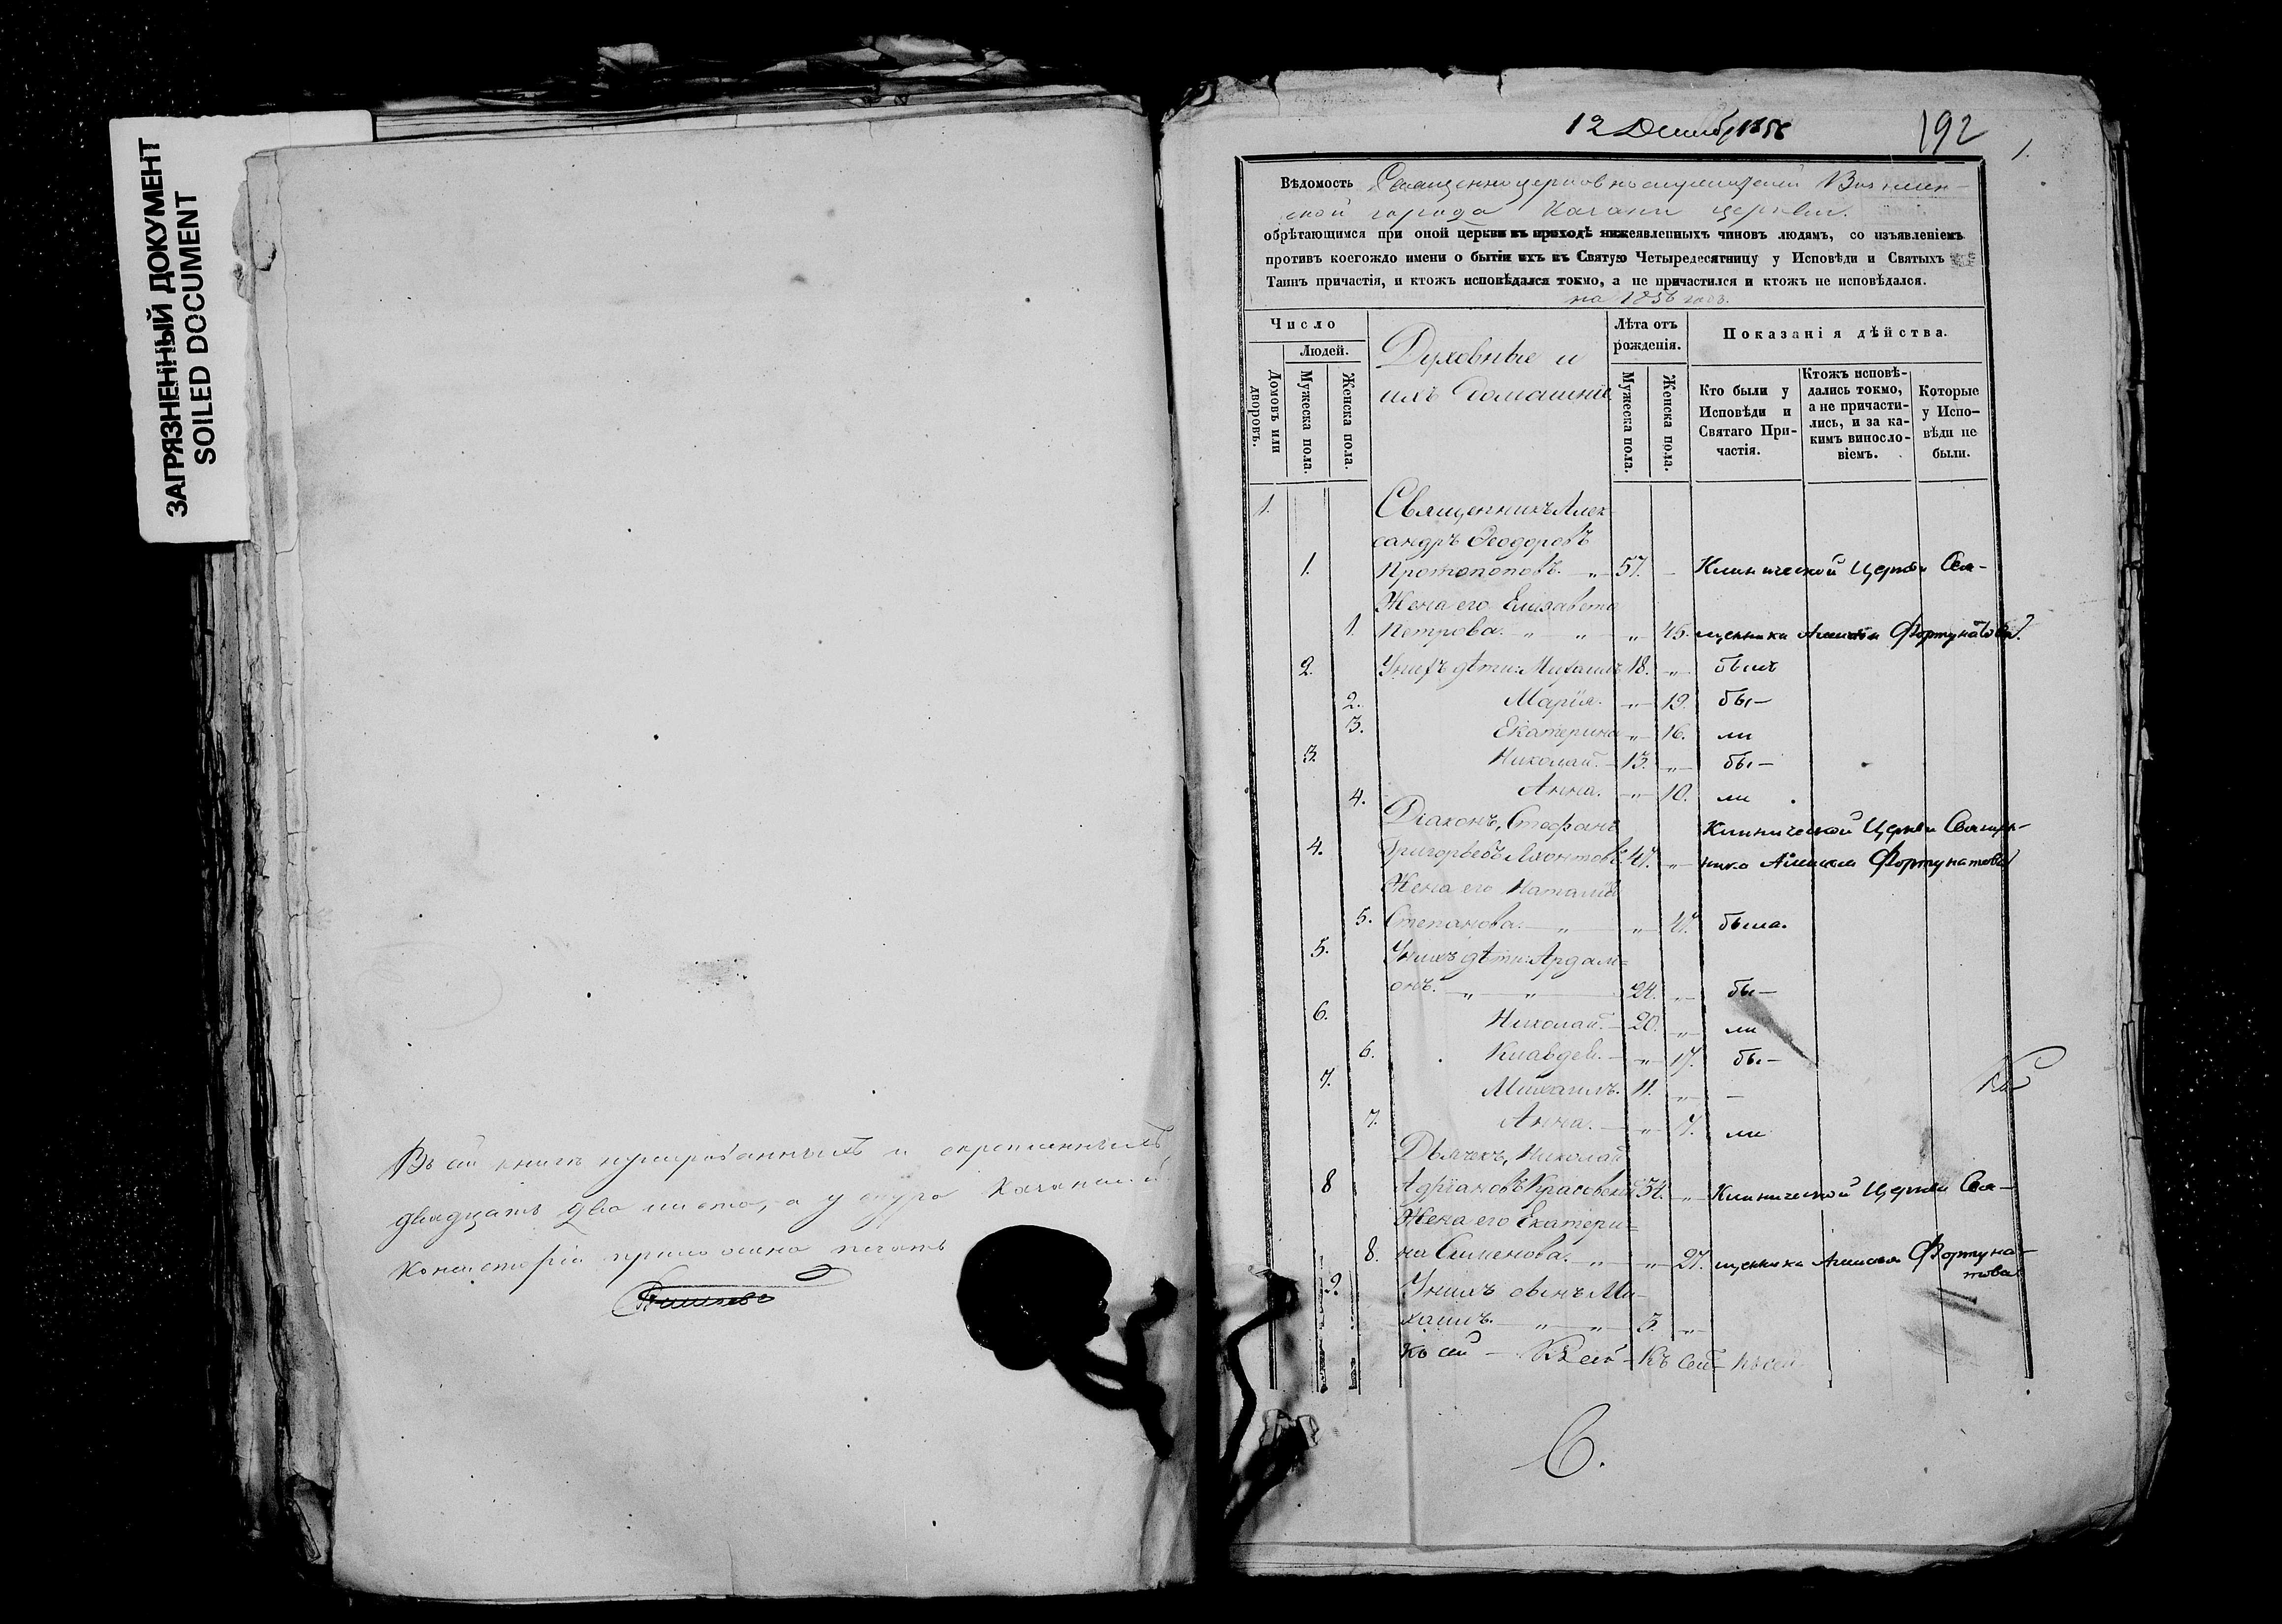 ЗАГРЯЗНЕННЫЙ ДОКУМЕНТ
SOILED DOCUMENT
Въ сей книгѣ нумерованныхъ и скрепленныхъ
двадцать два листа, а у шнура Казанской
Консисторіи приложена печать
12 Декабр 1856
192
1.
Вѣдомость Священноцерковнослужителей
ской города Казани церкви.
обрѣтающимся при оной церкви въ приходѣ нижеявленныхъ чиновъ людямъ, со изъявленіемъ
противъ коегождо имени о бытіи ихъ въ Святую Четыредесятницу у Исповѣди и Святыхъ
Таинъ причастія, и ктожъ исповѣдался токмо, а не причастился и ктожъ не исповѣдался.
на 1856 годъ.
Число
Людей.
Домовъ или дворовъ.
Мужеска пола.
Женска пола.
Духовные и
ихъ домашніе
Лѣта отъ рожденія.
Мужеска пола.
Женска пола.
Показанія дѣйства.
Кто были у Исповѣди и Святаго Причастія.
Ктожъ исповѣдались токмо, а не причастились, и за какимъ винословіемъ.
Которые у Исповѣди не были.
1. Священникъ Алек
сандръ Ѳеодоровъ
1. Протопоповъ. „ 57. – Клинической Церкви Свя–
Жена его Елизавета
1. Петрова. „ „ „ 45. щенника Алексѣя Фортунатова.
2. У нихъ дѣти: Михаилъ 18. „ былъ
2. Марія. „ 19. бы–
3. Екатерина „ 16. ли
3. Николай. 13. „ бы–
4. Анна. „ 10. ли
Діаконъ, Стефанъ Клинической Церкви Священ–
4. Григорьевъ 47. „ ника Алексѣя Фортунатова
Жена его Наталія
5. Степанова. „ „ 47. была.
5. У нихъ дѣти: Ардалі=
онъ. „ „ 24. „ бы–
6. Николай. 20. „ ли
6. Клавдія. „ 17. бы–
7. Михаилъ. 11. „ –
7. Анна. „ 7. ли
Дьячекъ, Николай
8 Адріановъ Красовскій 34. „ Клинической Церкви Свя–
Жена его Екатери=
8. на Симеонова. „ „ 27. щенника Алексѣя Фортуна–
това
9. У нихъ сынъ Ми–
хаилъ. „ „ 5. „
Къ сей – Къ сей – Къ сей – Къ сей
С.